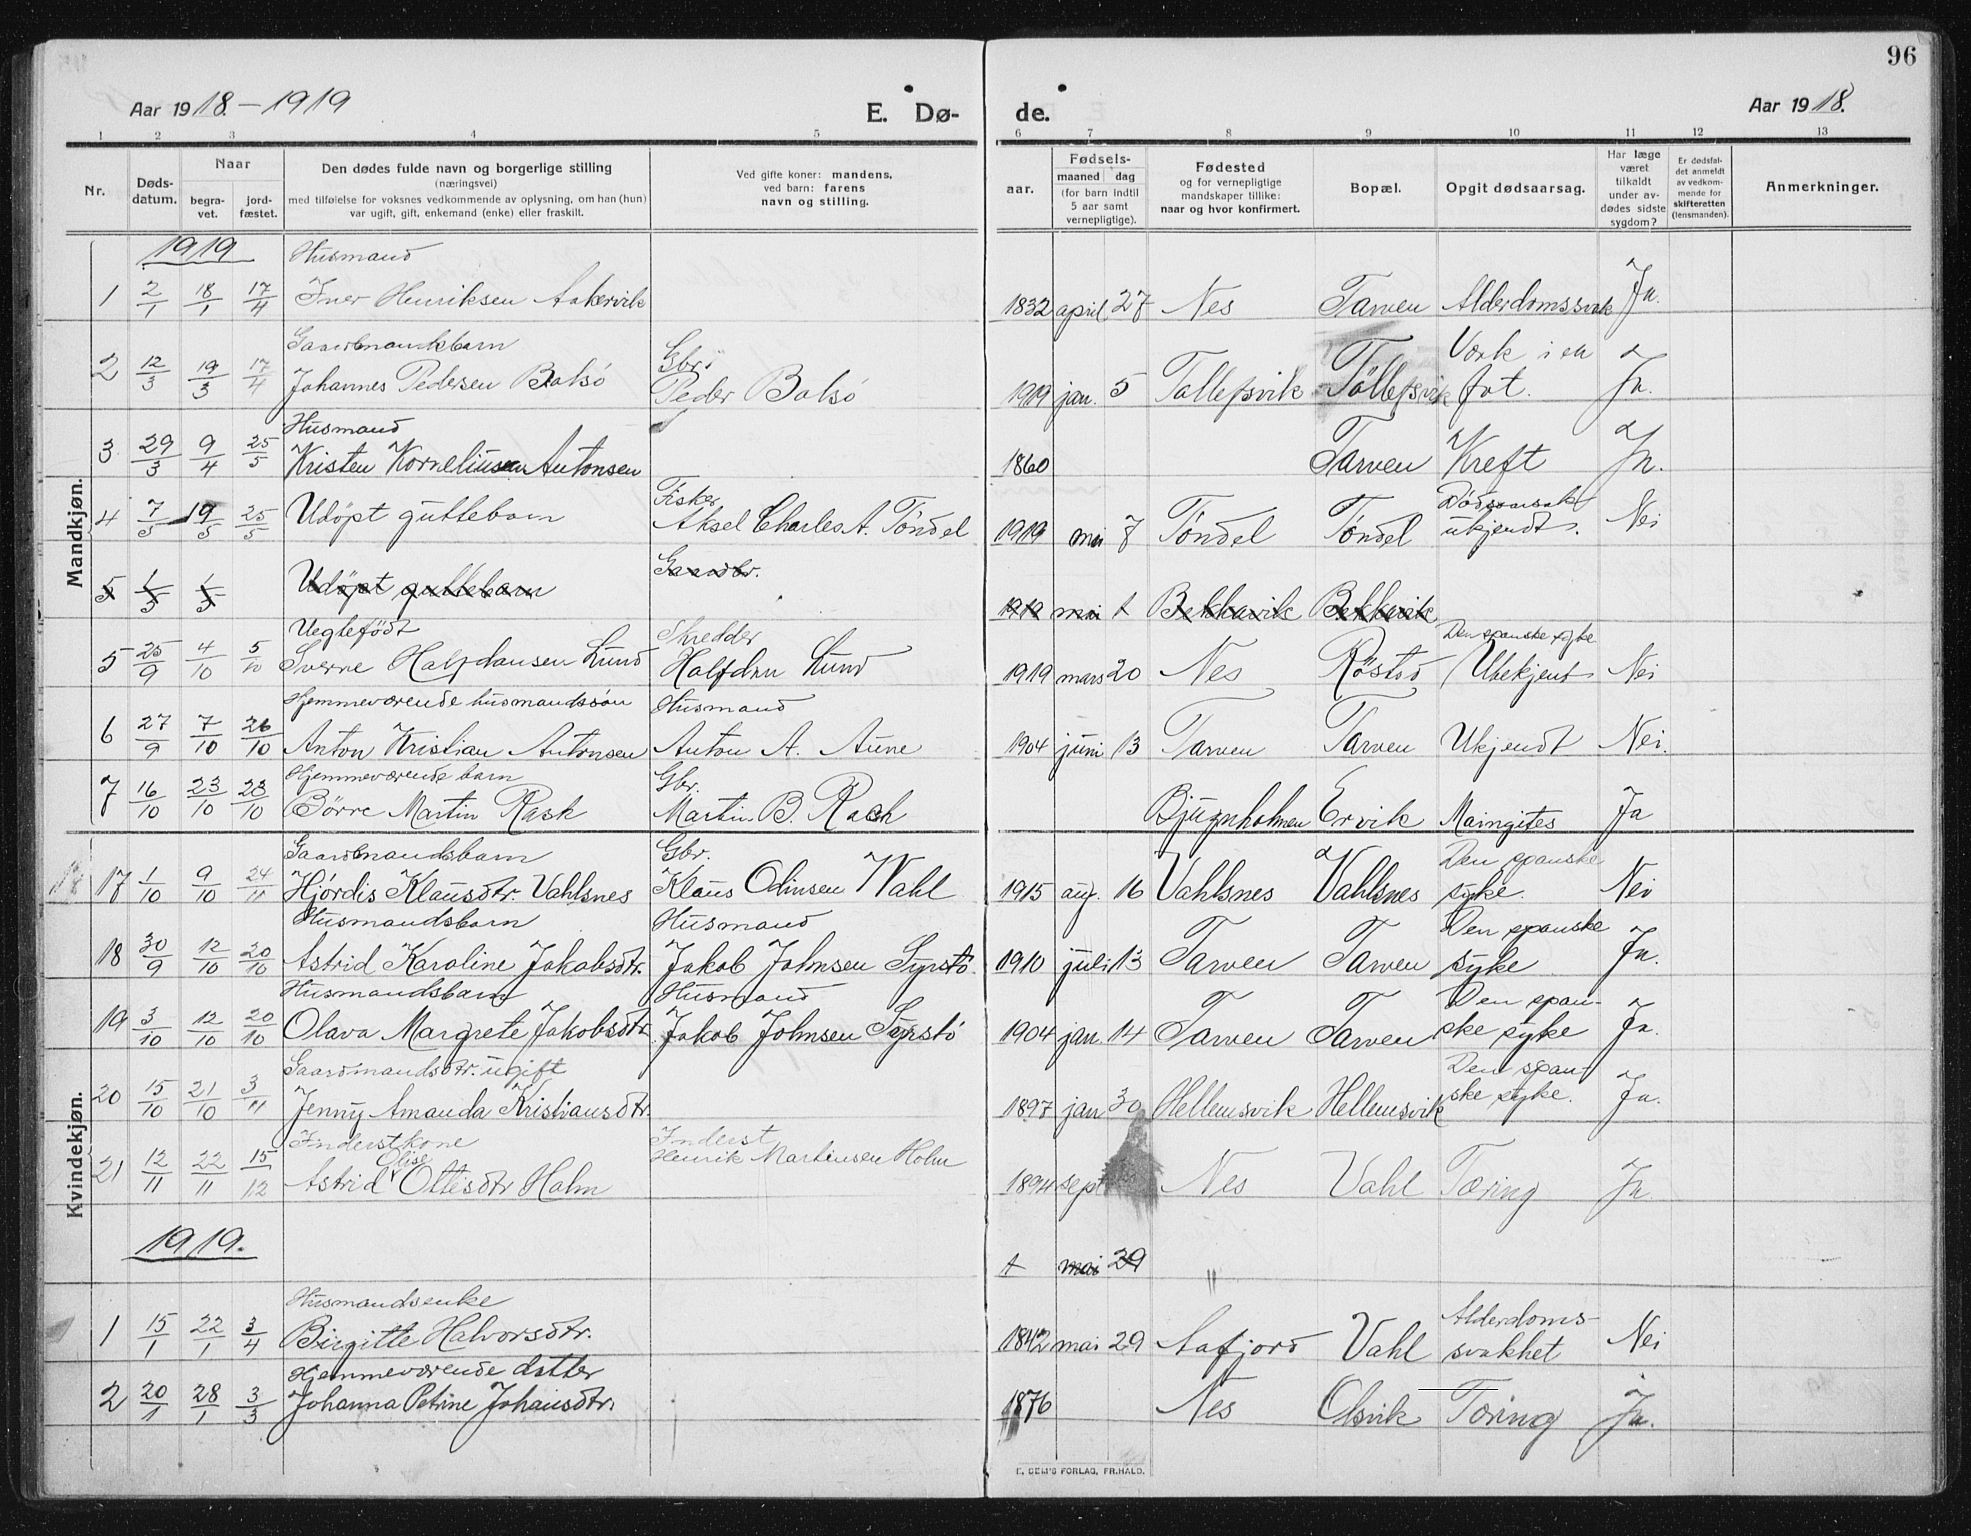 96
Aar 1918.-1919
E. Dø-
de.
Aar 1918.
1 2 3 4 5 6 7 8 9 10 11 12 13
Nr.
Døds-
datum.
Naar
begra-
vet.
jord-
fæstet.
Den dødes fulde navn og borgerlige stilling
(næringsvei)
med tilføielse for voksnes vedkommende av oplysning, om han (hun)
var ugift, gift, enkemand (enke) eller fraskilt.
Ved gifte koner: mandens.
ved barn: farens
navn og stilling.
aar.
Fødsels-
maaned dag
(for barn indtil
5 aar samt
vernepligtige).
Fødested
og for vernepligtige
mandskaper tillike:
naar og hvor konfirmert.
Bopæl.
Opgit dødsaarsag.
Har læge
været
tilkaldt
under av-
dødes sidste
sygdom?
Er dødsfal-
det anmeldt
av vedkom-
mende for
skifteretten
(lensmanden).
Anmerkninger.
Mandkjøn.
1919
Husmand
1 2/1 18/1 17/4 Iver Henriksen Aakervik 1832 april 27 Nes Tarven Alderdomssvak Ja.
Gaardmandsbarn Gbr. Værk i en
2 12/3 19/3 17/4 Johannes Pedersen Balsö Peder Balsö 1919 jan. 5 Tallefsvik Tøllefsvik fot. Ja.
Husmand
3 29/3 9/4 25/5 Kristen Korneliusen Antonsen 1860 Tarven Kreft Ja.
Fisker Dødsaarsak
4 7/5 19/5 25/5 Udøpt guttebarn Aksel Charles A. Töndel 1919 mai 7 Töndel Töndel ukjendt. Nei
Gaardbr.
5 1/5 1/5 Udöpt guttebarn 1919 mai 1 Bekkavik Bekkavik
Uegtefödt Skredder Den spanske syke
5 25/9 4/10 5/10 Sverre Halfdansen Lund Halfdan Lund 1919 mars 20 Nes Röstsö (Ubekjent Nei
Hjemmeværende husmandssøn Husmand
6 27/9 7/10 26/10 Anton Kristian Antonsen Anton A. Aune 1904 juni 13 Tarven Tarven Ukjendt Nei.
Hjemmeværende barn Gbr.
7 16/10 23/10 23/10 Börre Martin Rask Martin B. Rask Bjugnholmen Ervik Maingites Ja
Kvindekjøn.
Gaardmandsbarn Gbr. Den spanske
17 1/10 9/10 24/11 Hjördis Klausdtr. Vahlsnes Klaus Olinsen Wahl 1915 aug. 16 Vahlsnes Vahlsnes syke. Nei
Husmandsbarn Husmand Den spanske
18 30/9 12/10 20/10 Astrid Karoline Jakobsdtr. Jakob Johnsen Syrstö 1910 juli 13 Tarven Tarven syke Ja.
Husmandsbarn Husmand Den span-
19 3/10 12/10 20/10 Olava Margrete Jakobsdtr. Jakob Johnsen Syrstö 1904 jan. 14 Tarven Tarven ske syke Ja.
Gaardmandsdtr. ugift Den span-
20 15/10 21/10 3/11 Jenny Amanda Kristiansdtr. 1897 jan 30 Hellemsvik Hellemsvik ske syke. Ja.
Inderstkone Inderst
Olise Henrik Martinsen Holm
21 12/11 22/11 15/12 Astrid Ottesdtr Holm 1894 sept Nes Vahl Tæring Ja
1919.
1 mai 29 "
Husmandsenke Alderdoms-
1 15/1 22/1 3/4 Birgitte Halvorsdtr. 1842 mai 29 Aafjord Vahl svakhet Nei
Hjemmeværende datter
2 20/1 28/1 3/3 Johanna Petrine Johansdtr. 1876 Nes Olsvik Tæring Ja.
E. SEM'S FORLAG, FR.HALD.